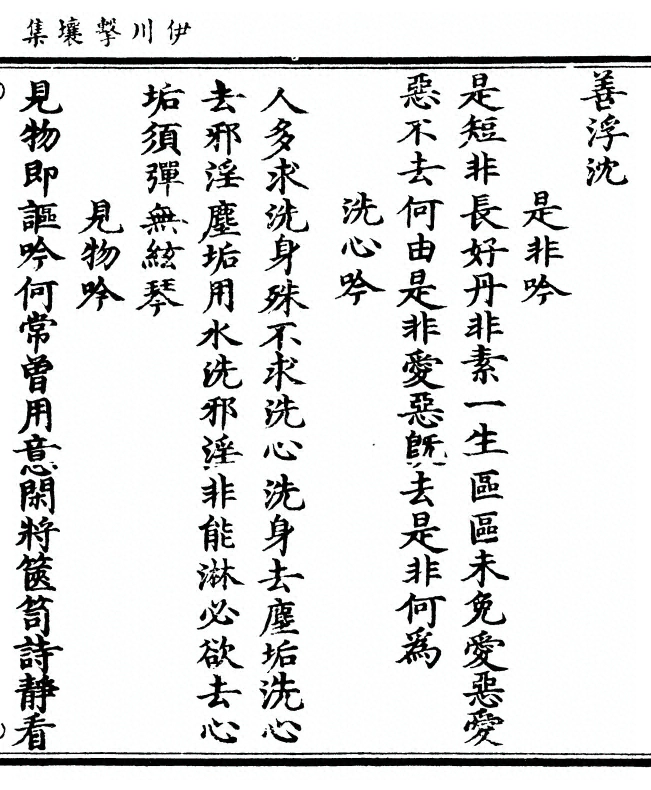 集壤擊川伊
善浮沈
是非吟
是短非長好丹非素一生區區未免愛惡愛
惡不去何由是非愛惡旣去是非何爲
洗心吟
人多求洗身殊不求洗心洗身去塵垢洗心
去邪淫塵垢用水洗邪淫非能淋必欲去心
垢須彈無絃琴
見物吟
見物即謳吟何常曾用意閑將篋笥詩靜看